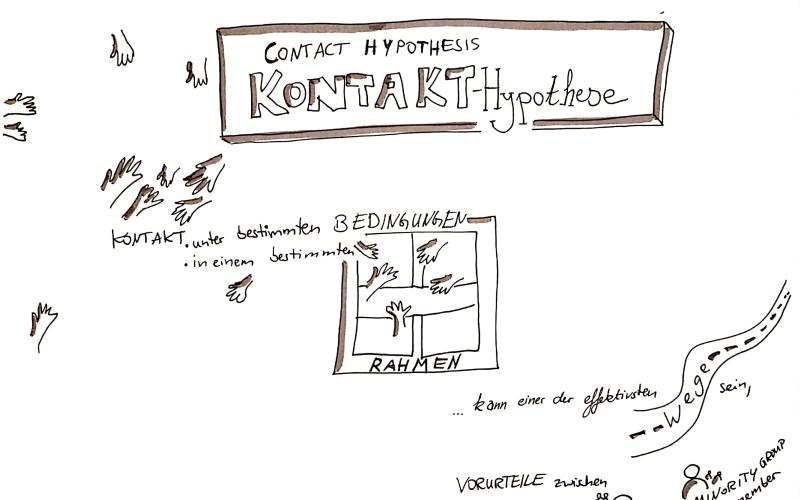 CONTACT HYPOTHESIS
KONTAKT-Hypothese
KONTAKT • unter bestimmten BEDINGUNGEN
• in einem bestimmten
RAHMEN
... kann einer der effektivsten Wege sein,
VORURTEILE zwischen
MINORITY GROUP
member